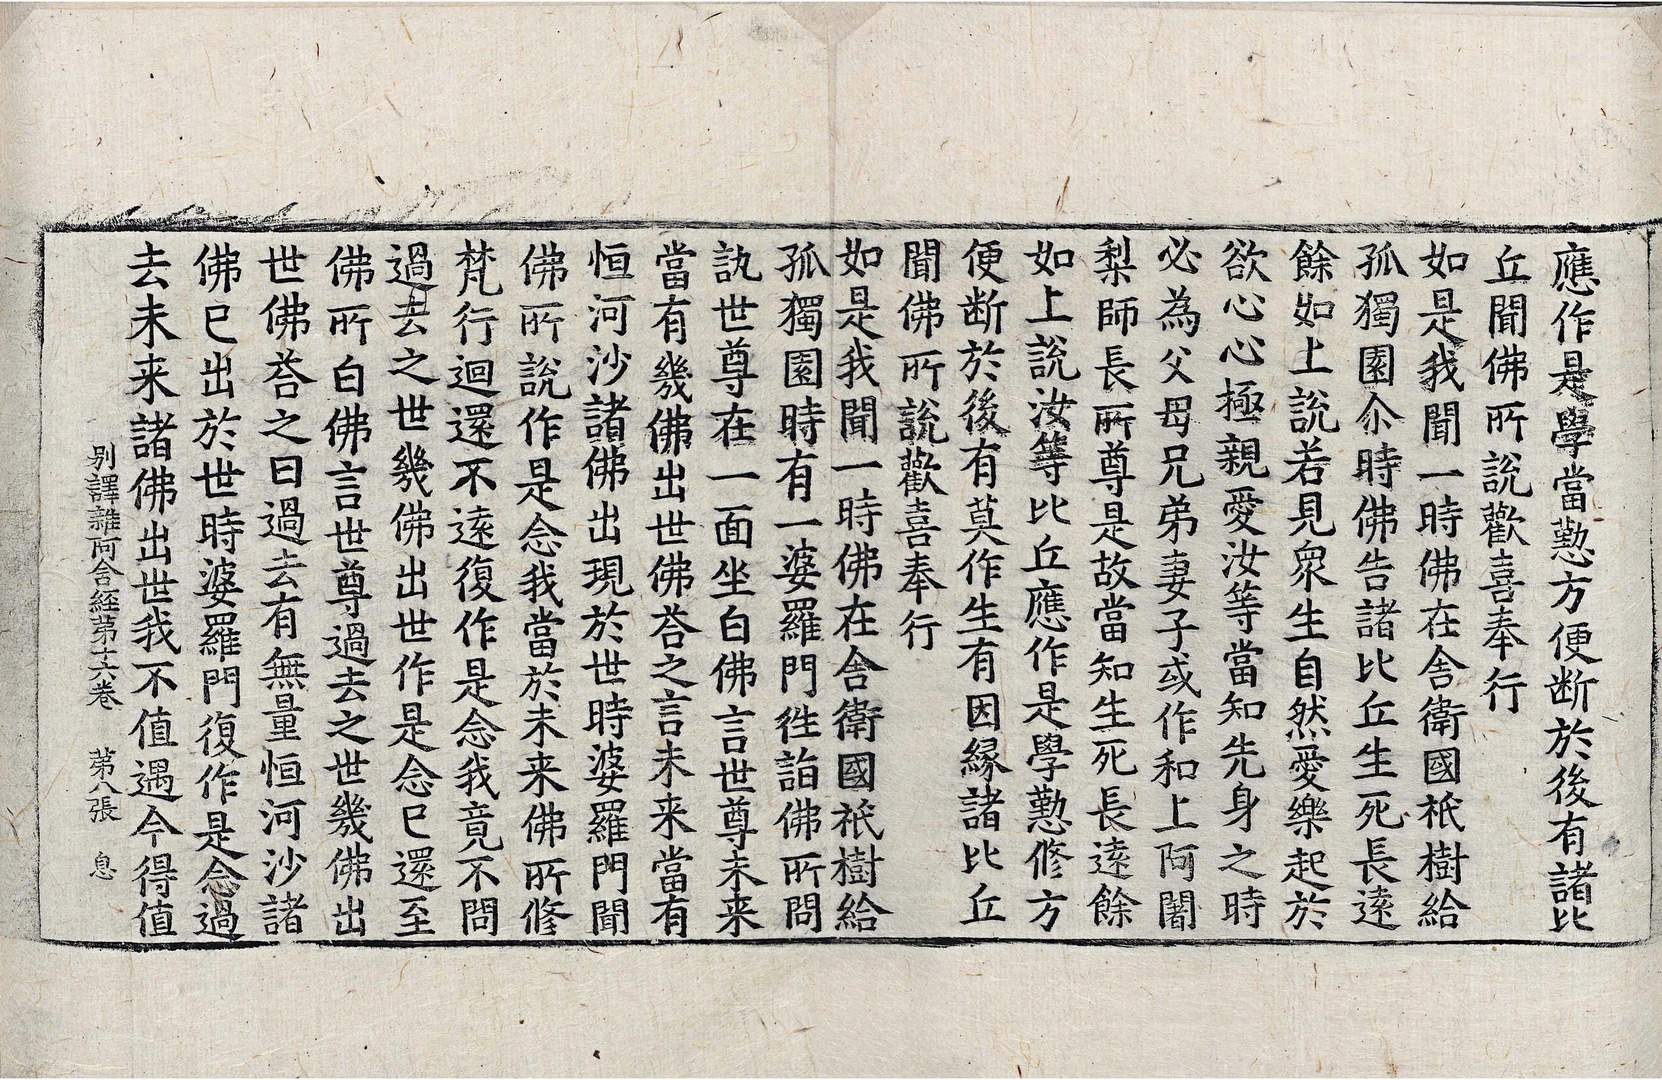 應作是學當懃方便断於後有諸比
丘聞佛所說歡喜奉行
如是我聞一時佛在舍衛國祇樹給
孤獨園尒時佛告諸比丘生死長逺
餘如上說若見衆生自然愛樂起於
欲心心極親愛汝等當知先身之時
必為父母兄弟妻子或作和上阿闍
梨師長所尊是故當知生死長逺餘
如上說汝等比丘應作是學懃修方
便断於後有莫作生有因縁諸比丘
聞佛所說歡喜奉行
如是我聞一時佛在舍衛國祇樹給
孤獨園時有一婆羅門徃詣佛所問
訊世尊在一面坐白佛言世尊未来
當有幾佛出世佛荅之言未来當有
恒河沙諸佛出現於世時婆羅門聞
佛所說作是念我當於未来佛所修
梵行迴還不逺復作是念我竟不問
過去之世幾佛出世作是念已還至
佛所白佛言世尊過去之世幾佛出
世佛荅之曰過去有無量恒河沙諸
佛已出於世時婆羅門復作是念過
去未来諸佛出世我不值遇今得值
别譯雜阿含經苐十六卷 苐八張 息